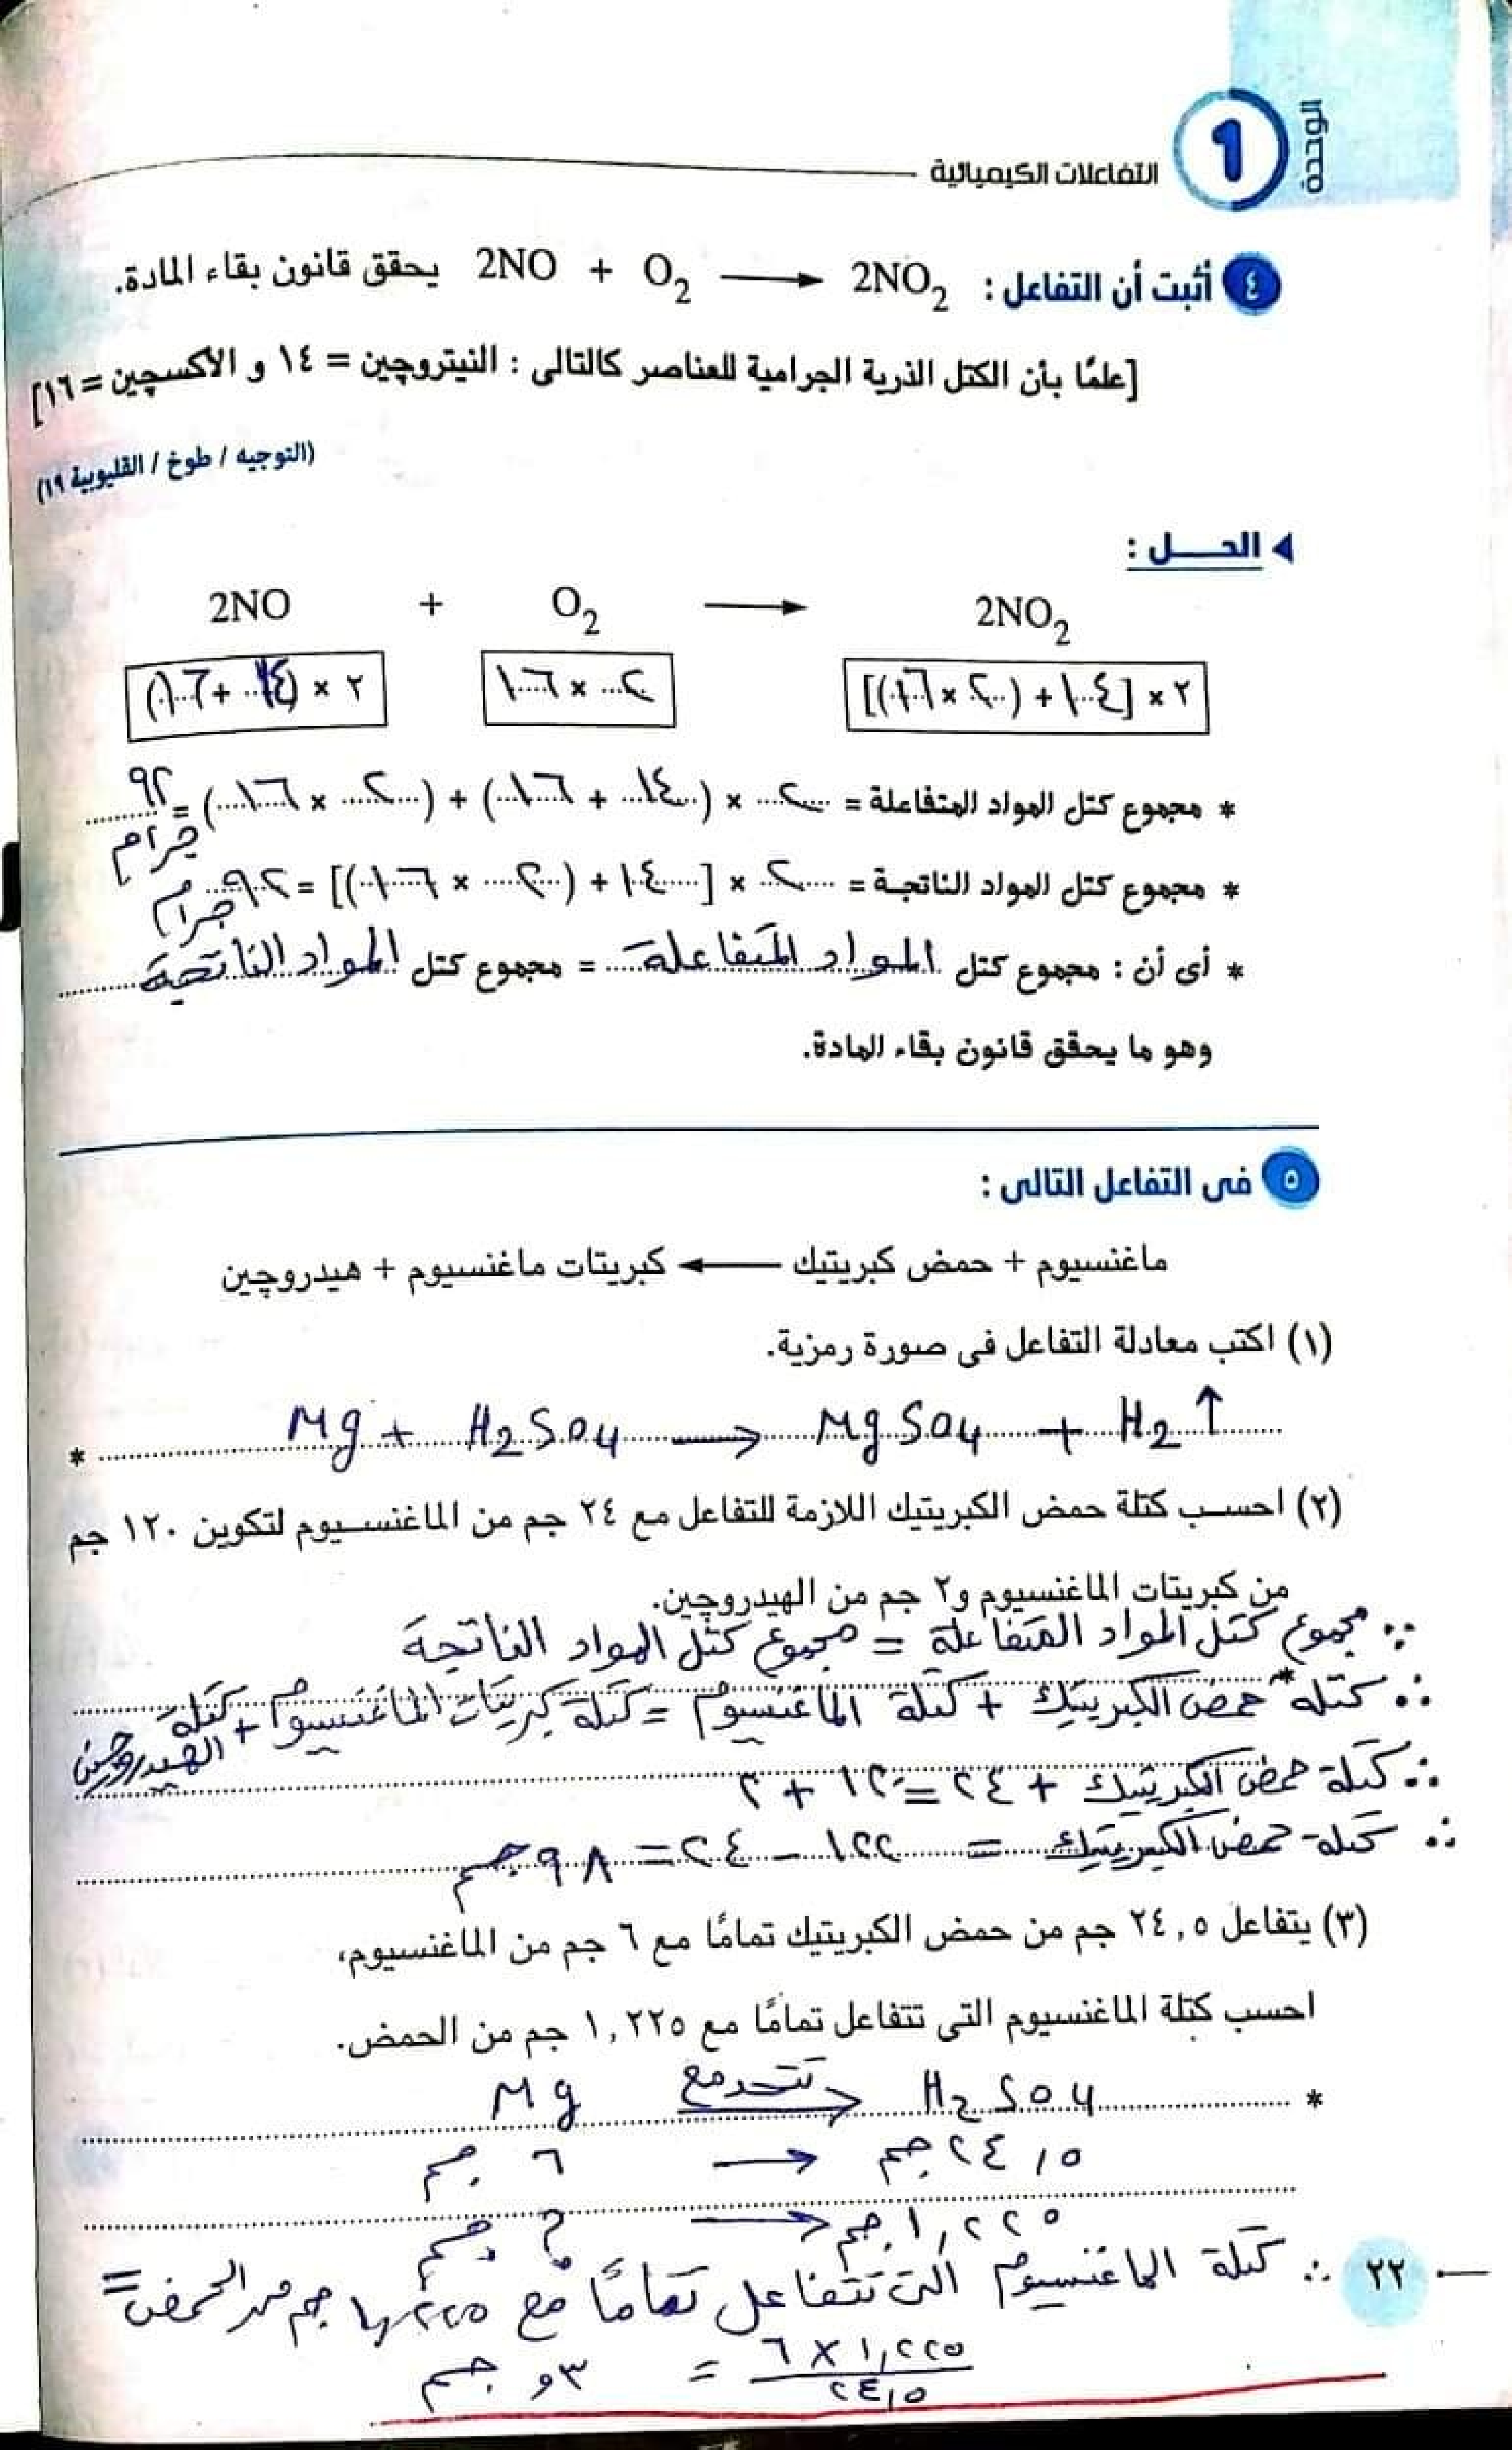 الوحدة
1
التفاعلات الكيميائية
٤ أثبت أن التفاعل : 2NO + O2 ⟶ 2NO2 يحقق قانون بقاء المادة.
[علمًا بأن الكتل الذرية الجرامية للعناصر كالتالى : النيتروچين = ١٤ و الأكسچين = ١٦]
(التوجيه / طوخ / القليوبية ١٩)
الحـــل :
2NO + O2 ⟶ 2NO2
٢ × (١٤ + ١٦)
٢ × ١٦
٢ × [١٤ + (٢ × ١٦)]
* مجموع كتل المواد المتفاعلة = ٢ × (١٤ + ١٦) + (٢ × ١٦) = ٩٢
جرام
* مجموع كتل المواد الناتجـة = ٢ × [١٤ + (٢ × ١٦)] = ٩٢
جرام
* أى أن : مجموع كتل المواد المتفاعلة = مجموع كتل المواد الناتجة
وهو ما يحقق قانون بقاء المادة.
٥ فى التفاعل التالى :
ماغنسيوم + حمض كبريتيك ⟵ كبريتات ماغنسيوم + هيدروچين
(١) اكتب معادلة التفاعل فى صورة رمزية.
* Mg + H2SO4 ⟶ MgSO4 + H2↑
(٢) احسـب كتلة حمض الكبريتيك اللازمة للتفاعل مع ٢٤ جم من الماغنسـيوم لتكوين ١٢٠ جم
من كبريتات الماغنسيوم و٢ جم من الهيدروچين.
∵ مجموع كتل المواد المتفاعلة = مجموع كتل المواد الناتجة
∴ كتلة حمض الكبريتيك + كتلة الماغنسيوم = كتلة كبريتات الماغنسيوم + كتلة
الهيدروجين
∴ كتلة حمض الكبريتيك + ٢٤ = ١٢٠ + ٢
∴ كتلة حمض الكبريتيك = ١٢٢ − ٢٤ = ٩٨ جم
(٣) يتفاعل ٢٤,٥ جم من حمض الكبريتيك تمامًا مع ٦ جم من الماغنسيوم،
احسب كتلة الماغنسيوم التى تتفاعل تمامًا مع ١,٢٢٥ جم من الحمض.
* H2SO4 تتحد مع ⟶ Mg
٢٤,٥ جم ⟶ ٦ جم
١,٢٢٥ جم ⟶ ؟ جم
∴ كتلة الماغنسيوم التى تتفاعل تمامًا مع ١,٢٢٥ جم من الحمض =
٦ × ١,٢٢٥
٢٤,٥
= ٣و جم
٢٢